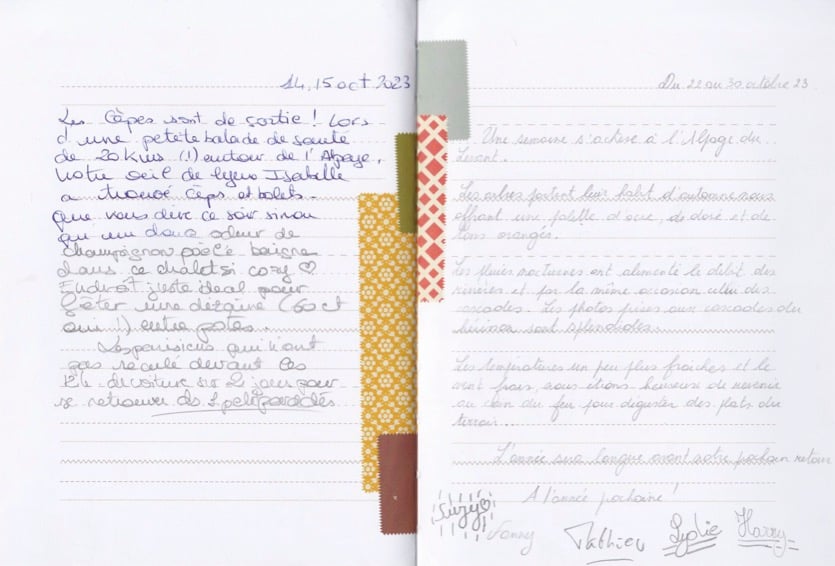 14, 15 oct 2023
Les Cêpes sont de sortie ! Lors
d'une petite balade de santé
de 20 Kms (!) autour de l'Alpage,
notre oeil de lynx Isabelle
a trouvé cêps et bolets.
Que vous dire ce soir sinon
qu'une douce odeur de
champignon poêlé baigne
dans ce chalet si cozy ♡
Endroit juste idéal pour
fêter une dizaine (60 et
oui !) entre potes.
Les parisiens qui n'ont
pas reculé devant les
de voiture sur 2 jours pour
se retrouver
Du 22 au 30 octobre 23
Une semaine s'achève à l'Alpage du
Levant.
Les arbres portent leur habit d'automne nous
offrant une palette d'ocre, de doré et de
tons orangés.
Les pluies nocturnes ont alimenté le débit des
rivières et par la même occasion celui des
cascades. Les photos prises aux cascades du
hérisson sont splendides.
Les températures un peu plus fraîches et le
vent frais, nous étions heureuse de revenir
au coin du feu pour déguster des plats du
terroir...
L'année sera longue avant notre prochain retour
A l'année prochaine !
Suzy♡
Fanny
Mathieu
Lydie
Harry